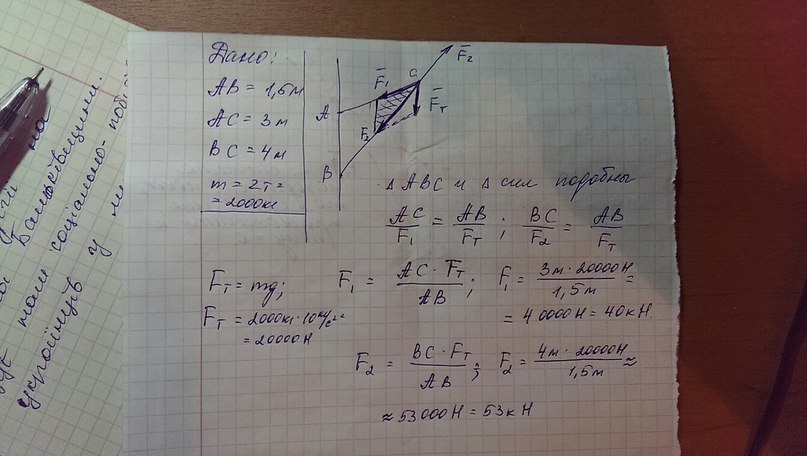 Дано:
AB = 1,5м
AC = 3м
BC = 4м
m = 2т =
= 2000кг
A
B
C
F₁
F₂
Fт
F₂
Δ ABC и Δ сил подобны
AC/F₁ = AB/Fт ; BC/F₂ = AB/Fт
Fт = mg;
Fт = 2000кг·10м/с² =
= 20000Н
F₁ = AC·Fт/AB ; F₁ = 3м·20000Н/1,5м =
= 40000Н = 40кН.
F₂ = BC·Fт/AB ; F₂ = 4м·20000Н/1,5м ≈
≈ 53000Н = 53кН
на
соціально-
українців у